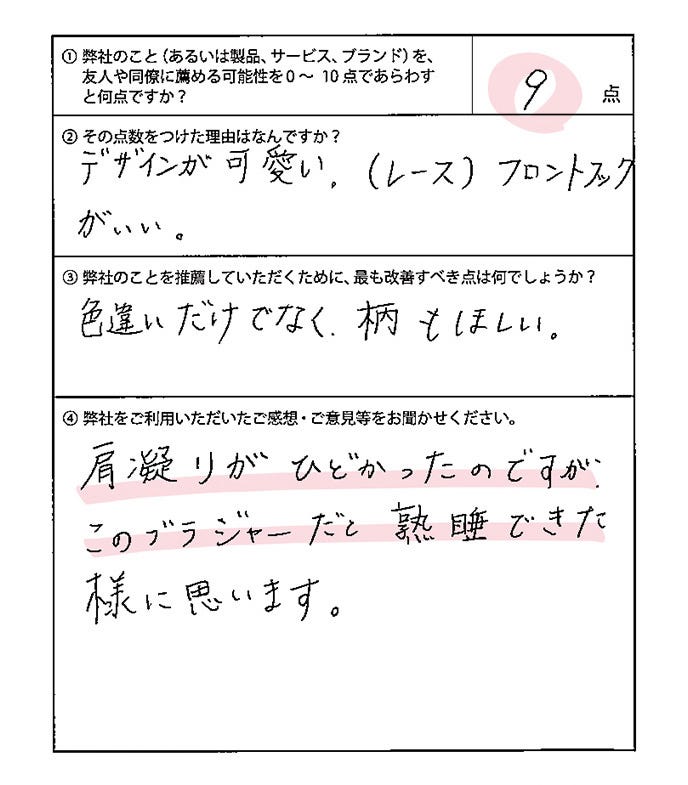 ① 弊社のこと（あるいは製品、サービス、ブランド）を、
友人や同僚に薦める可能性を0～10点であらわす
と何点ですか？
9 点
② その点数をつけた理由はなんですか？
デザインが可愛い。（レース）フロントフック
がいい。
③ 弊社のことを推薦していただくために、最も改善すべき点は何でしょうか？
色違いだけでなく、柄もほしい。
④ 弊社をご利用いただいたご感想・ご意見等をお聞かせください。
肩凝りがひどかったのですが、
このブラジャーだと熟睡できた
様に思います。